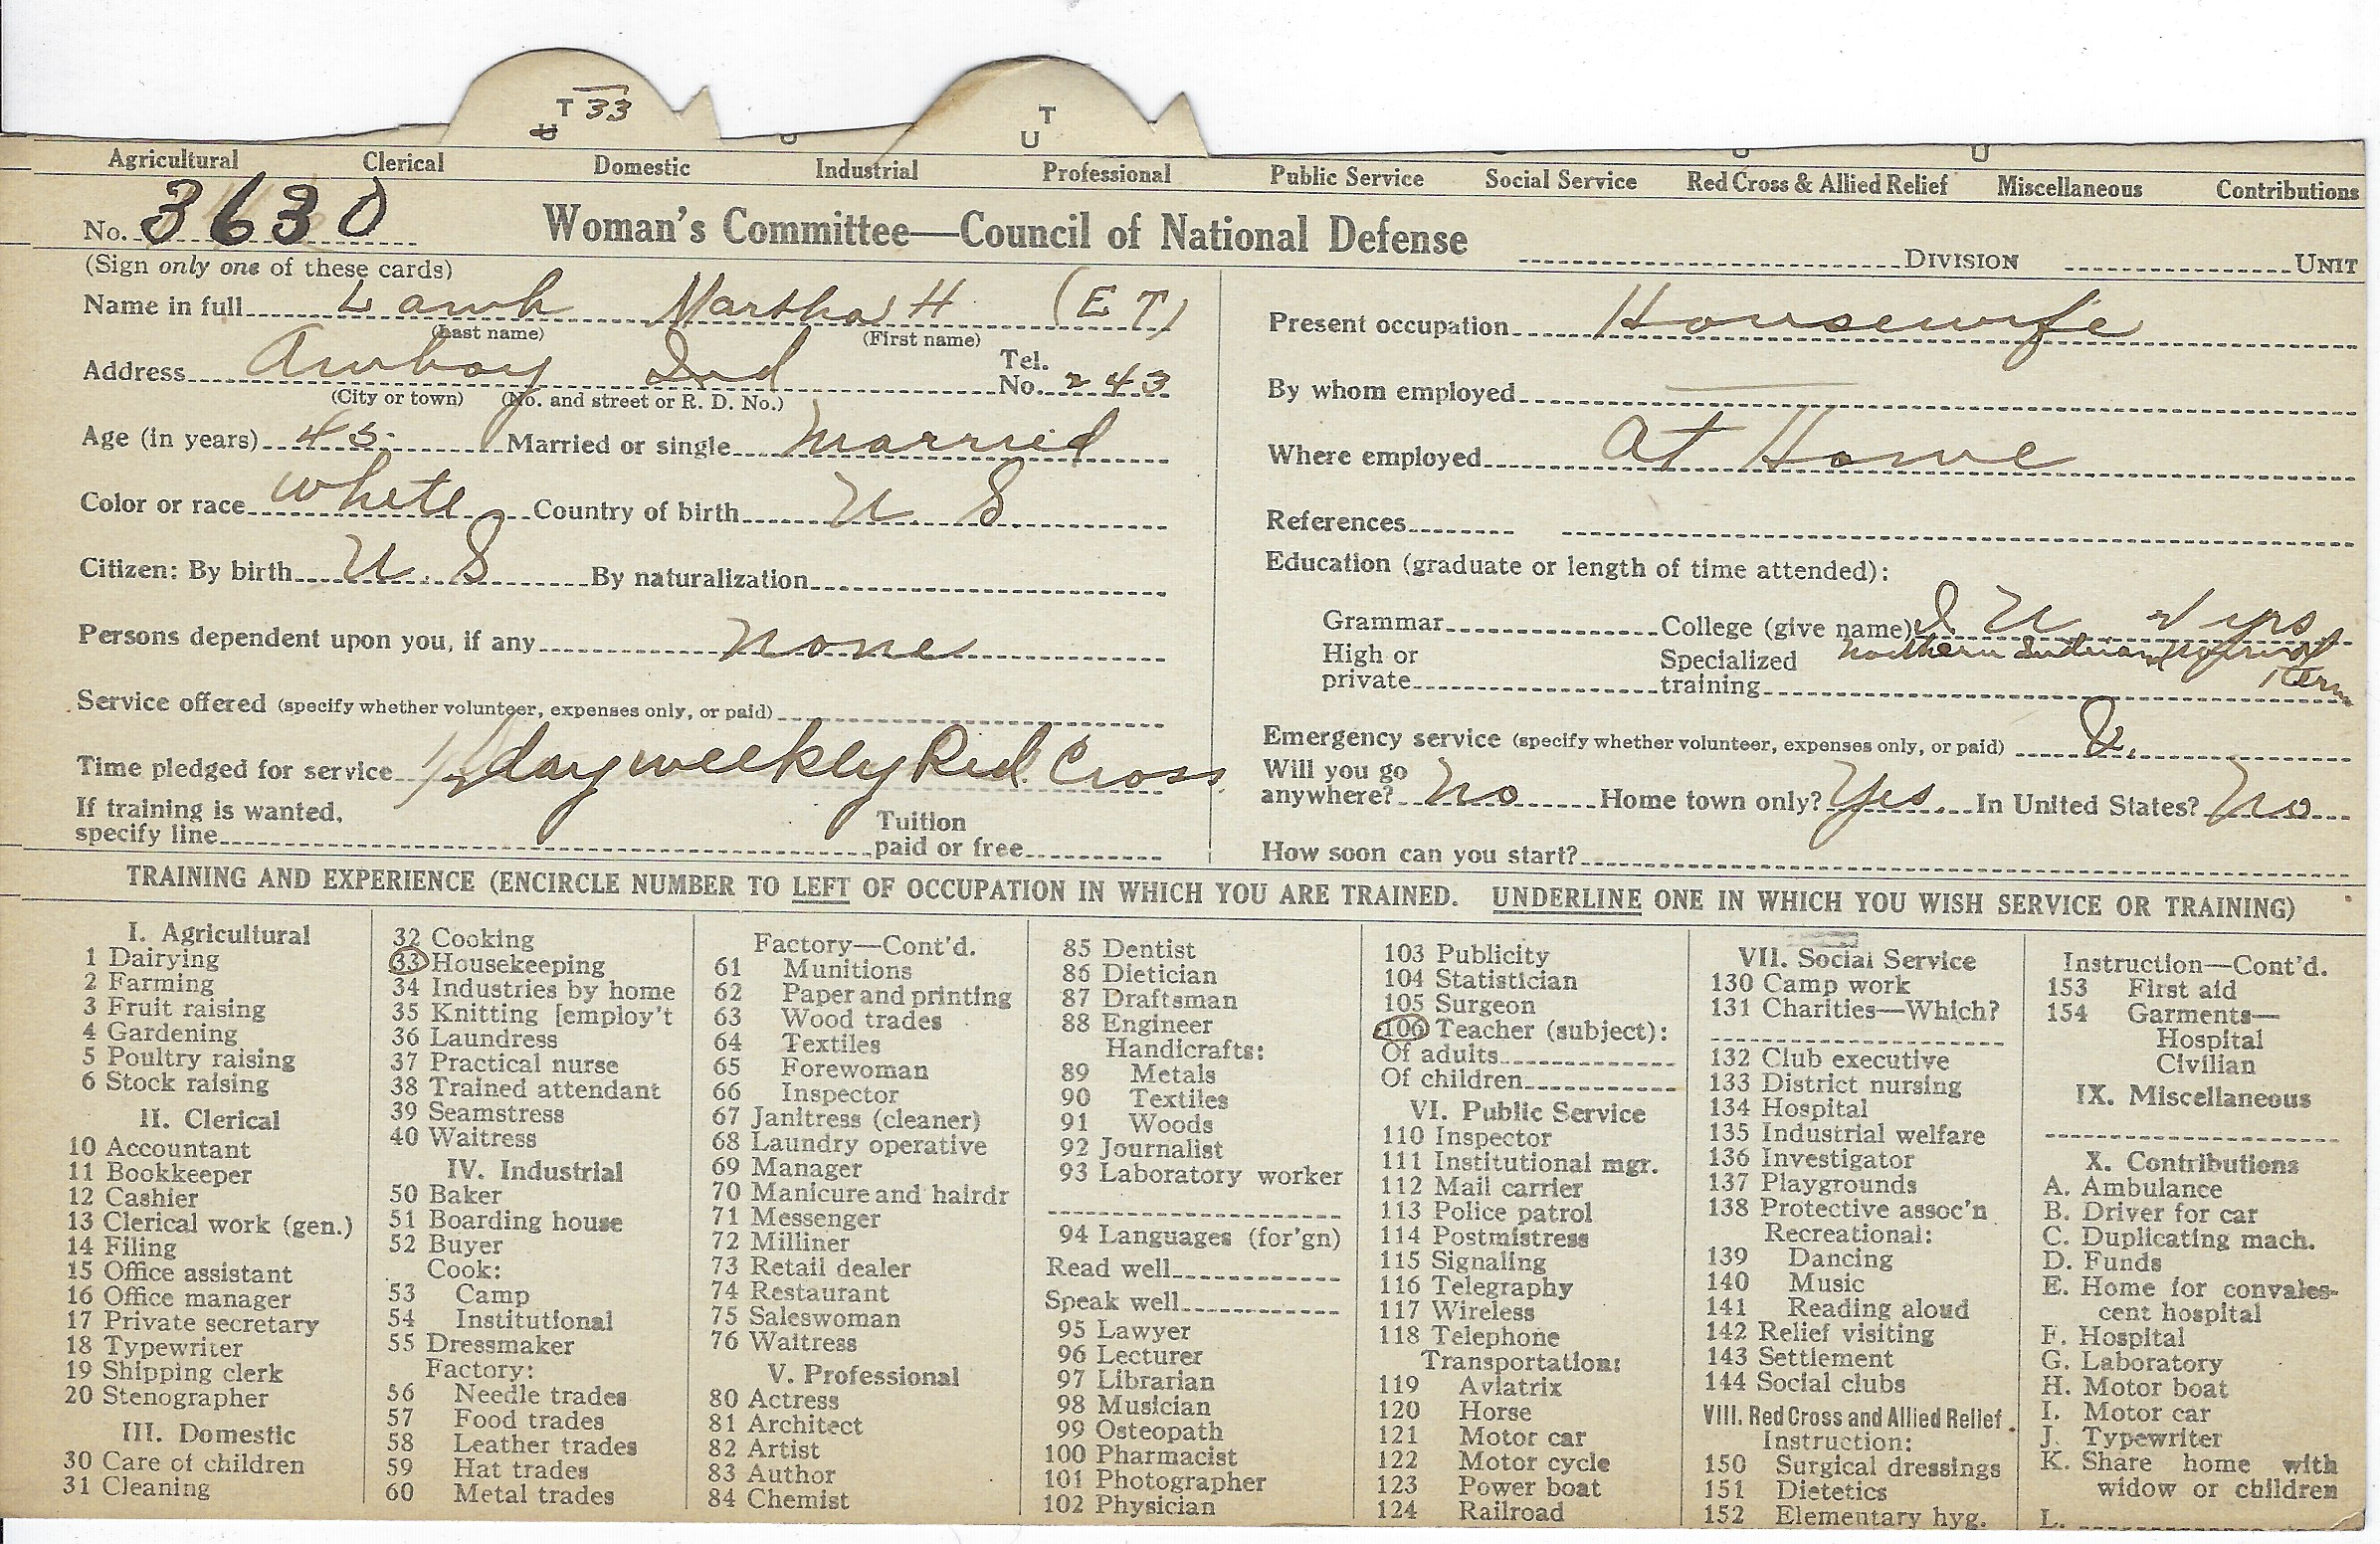 T 33
U
T
U
U
U
Agricultural Clerical Domestic Industrial Professional Public Service Social Service Red Cross & Allied Relief Miscellaneous Contributions
No. 3630
Woman's Committee—Council of National Defense
DIVISION UNIT
(Sign only one of these cards)
Name in full Martha H (E T)
(Last name) (First name)
Address Amboy Ind Tel. No. 243
(City or town) (No. and street or R. D. No.)
Age (in years) 45 Married or single Married
Color or race White Country of birth U. S.
Citizen: By birth U. S By naturalization
Persons dependent upon you, if any none
Service offered (specify whether volunteer, expenses only, or paid)
Time pledged for service 1/2 day weekly Red Cross
If training is wanted, specify line Tuition paid or free
Present occupation Housewife
By whom employed
Where employed at Home
References
Education (graduate or length of time attended):
Grammar College (give name) I U 2 yrs
High or private Specialized training Northern Indiana 1 term
Emergency service (specify whether volunteer, expenses only, or paid)
Will you go anywhere? No Home town only? Yes In United States? No
How soon can you start?
TRAINING AND EXPERIENCE (ENCIRCLE NUMBER TO LEFT OF OCCUPATION IN WHICH YOU ARE TRAINED. UNDERLINE ONE IN WHICH YOU WISH SERVICE OR TRAINING)
I. Agricultural
1 Dairying
2 Farming
3 Fruit raising
4 Gardening
5 Poultry raising
6 Stock raising
II. Clerical
10 Accountant
11 Bookkeeper
12 Cashier
13 Clerical work (gen.)
14 Filing
15 Office assistant
16 Office manager
17 Private secretary
18 Typewriter
19 Shipping clerk
20 Stenographer
III. Domestic
30 Care of children
31 Cleaning
32 Cooking
33 Housekeeping
34 Industries by home
35 Knitting [employ't
36 Laundress
37 Practical nurse
38 Trained attendant
39 Seamstress
40 Waitress
IV. Industrial
50 Baker
51 Boarding house
52 Buyer
Cook:
53 Camp
54 Institutional
55 Dressmaker
Factory:
56 Needle trades
57 Food trades
58 Leather trades
59 Hat trades
60 Metal trades
Factory—Cont'd.
61 Munitions
62 Paper and printing
63 Wood trades
64 Textiles
65 Forewoman
66 Inspector
67 Janitress (cleaner)
68 Laundry operative
69 Manager
70 Manicure and hairdr
71 Messenger
72 Milliner
73 Retail dealer
74 Restaurant
75 Saleswoman
76 Waitress
V. Professional
80 Actress
81 Architect
82 Artist
83 Author
84 Chemist
85 Dentist
86 Dietician
87 Draftsman
88 Engineer
Handicrafts:
89 Metals
90 Textiles
91 Woods
92 Journalist
93 Laboratory worker
94 Languages (for'gn)
Read well
Speak well
95 Lawyer
96 Lecturer
97 Librarian
98 Musician
99 Osteopath
100 Pharmacist
101 Photographer
102 Physician
103 Publicity
104 Statistician
105 Surgeon
106 Teacher (subject):
Of adults
Of children
VI. Public Service
110 Inspector
111 Institutional mgr.
112 Mail carrier
113 Police patrol
114 Postmistress
115 Signaling
116 Telegraphy
117 Wireless
118 Telephone
Transportation:
119 Aviatrix
120 Horse
121 Motor car
122 Motor cycle
123 Power boat
124 Railroad
VII. Social Service
130 Camp work
131 Charities—Which?
132 Club executive
133 District nursing
134 Hospital
135 Industrial welfare
136 Investigator
137 Playgrounds
138 Protective assoc'n
Recreational:
139 Dancing
140 Music
141 Reading aloud
142 Relief visiting
143 Settlement
144 Social clubs
VIII. Red Cross and Allied Relief
Instruction:
150 Surgical dressings
151 Dietetics
152 Elementary hyg.
Instruction—Cont'd.
153 First aid
154 Garments—
Hospital
Civilian
IX. Miscellaneous
X. Contributions
A. Ambulance
B. Driver for car
C. Duplicating mach.
D. Funds
E. Home for convales-
cent hospital
F. Hospital
G. Laboratory
H. Motor boat
I. Motor car
J. Typewriter
K. Share home with
widow or children
L.